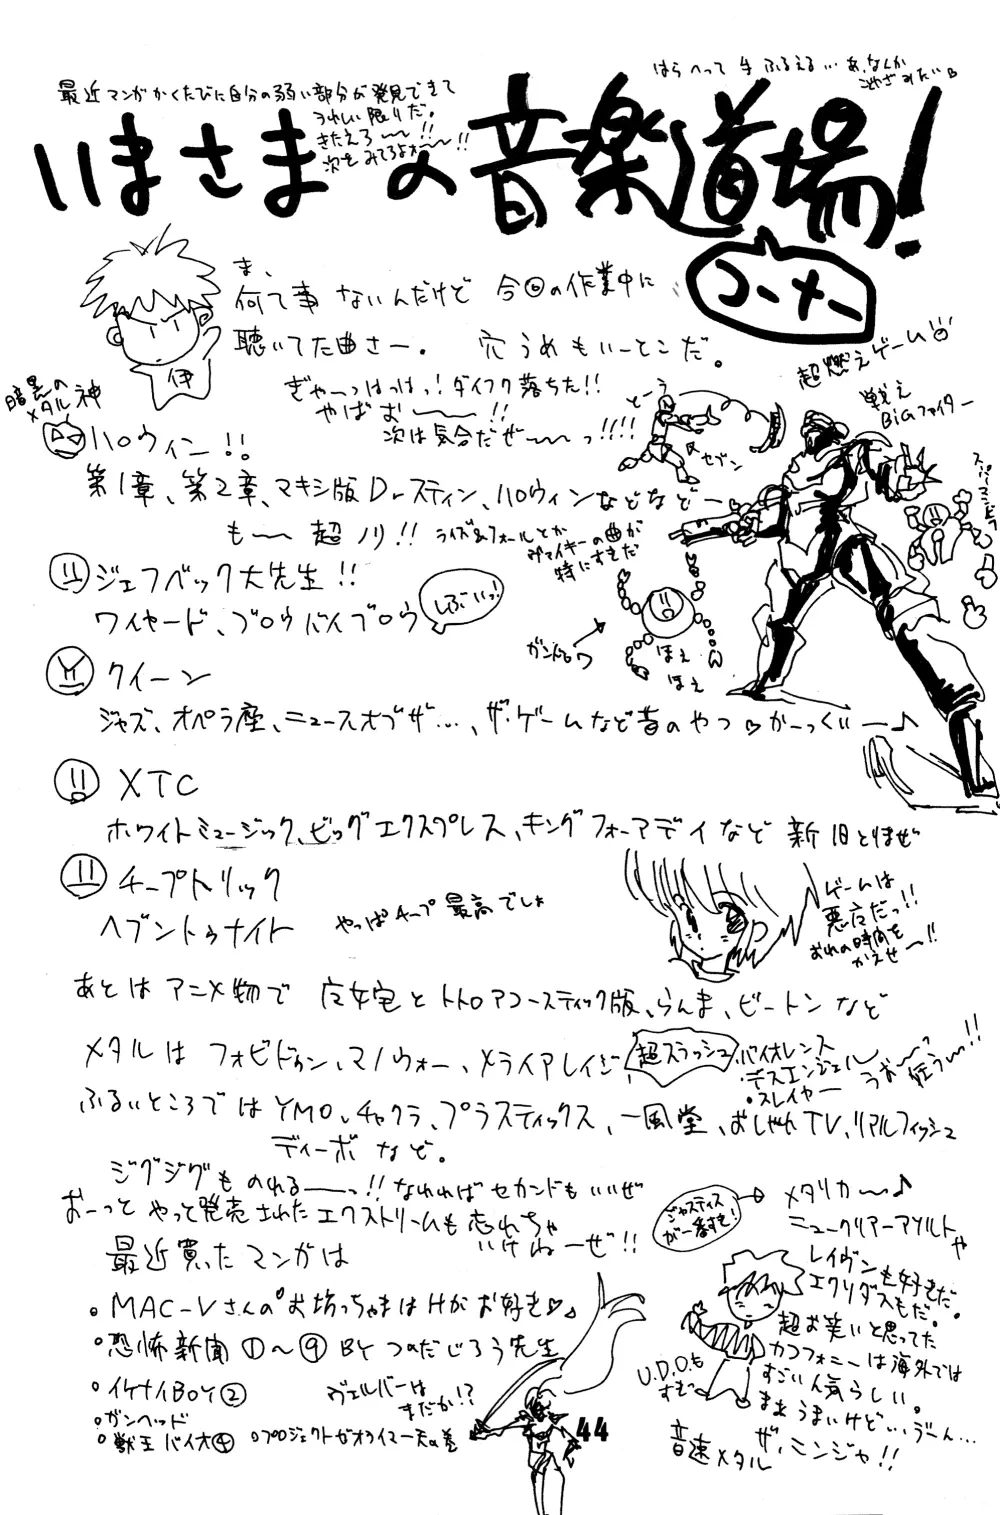 はらへって手ふるえる…あ、なんか
こやぎみたい
最近マンガかくたびに自分の弱い部分が発見できて
うれしい限りだ。
きたえろ〜〜!!
次をみてろよォ〜〜!!
いまさまの音楽道場!
コーナー
ま、
何て事ないんだけど 今回の作業中に
聴いてた曲さー。 穴うめもいーとこだ。
伊
ぎゃーっはっはっ!ダイフク落ちた!!
やばお〜〜!!
次は気合だぜ〜〜っ!!!!
超燃えゲーム
戦え
BiGファイター
セブン
暗黒の
メタル神
ハロウィン!!
第1章、第2章、マキシ版Drスティン、ハロウィンなどなどー
も〜〜超ノリ!!
ライズ&フォールとか
ヴァイキーの曲が
特にすきだ
ジェフベック大先生!!
ワイヤード、ブロウバイブロウ
しぶいっ!
ほえ
ほえ
クイーン
ジャズ、オペラ座、ニュースオブザ…、ザ・ゲームなど昔のやつ♡かーっくいー♪
XTC
ホワイトミュージック、ビッグエクスプレス、キングフォーアデイなど新旧とりまぜ
チープトリック
ヘブントゥナイト
やっぱチープ最高でしょ
ゲームは
悪魔だっ!!
おれの時間を
かえせ〜!!
あとはアニメ物で 魔女宅とトトロアコースティック版、らんま、ビートンなど
メタルはフォビドゥン、マノウォー、メライアレイジ
超スラッシュ
・バイオレンス
・デスエンジェル
・スレイヤー
うお〜っ
狂う〜!!
ふるいところではYMO、チャクラ、プラスティックス、一風堂、おしゃれTV、リアルフィッシュ
ディーボなど。
ジグジグものれる〜っ!!なれればセカンドもいいぜ
おーっとやっと発売されたエクストリームも忘れちゃ
いけねーぜ!!
ジャスティス
が一番すき!
メタリカ〜♪
ニュークリアーアソルトや
レイヴンも好きだ。
エクリダスもだ。
超お笑いと思ってた
カコフォニーは海外では
すごい人気らしい。
まぁうまいけど…、う゛ーん…
ザ、ニンジャ!!
U.D.O.も
すむ
音速メタル
最近買ったマンガは
・MAC-Vさんのお坊っちゃまはHがお好き♡
・恐怖新聞①〜⑨BYつのだじろう先生
・イケナイBOY②
・ガンヘッド
・獣王バイオ④ ・プロジェクトゼオライマー天の巻
ヴェルバーは
まだか!?
44